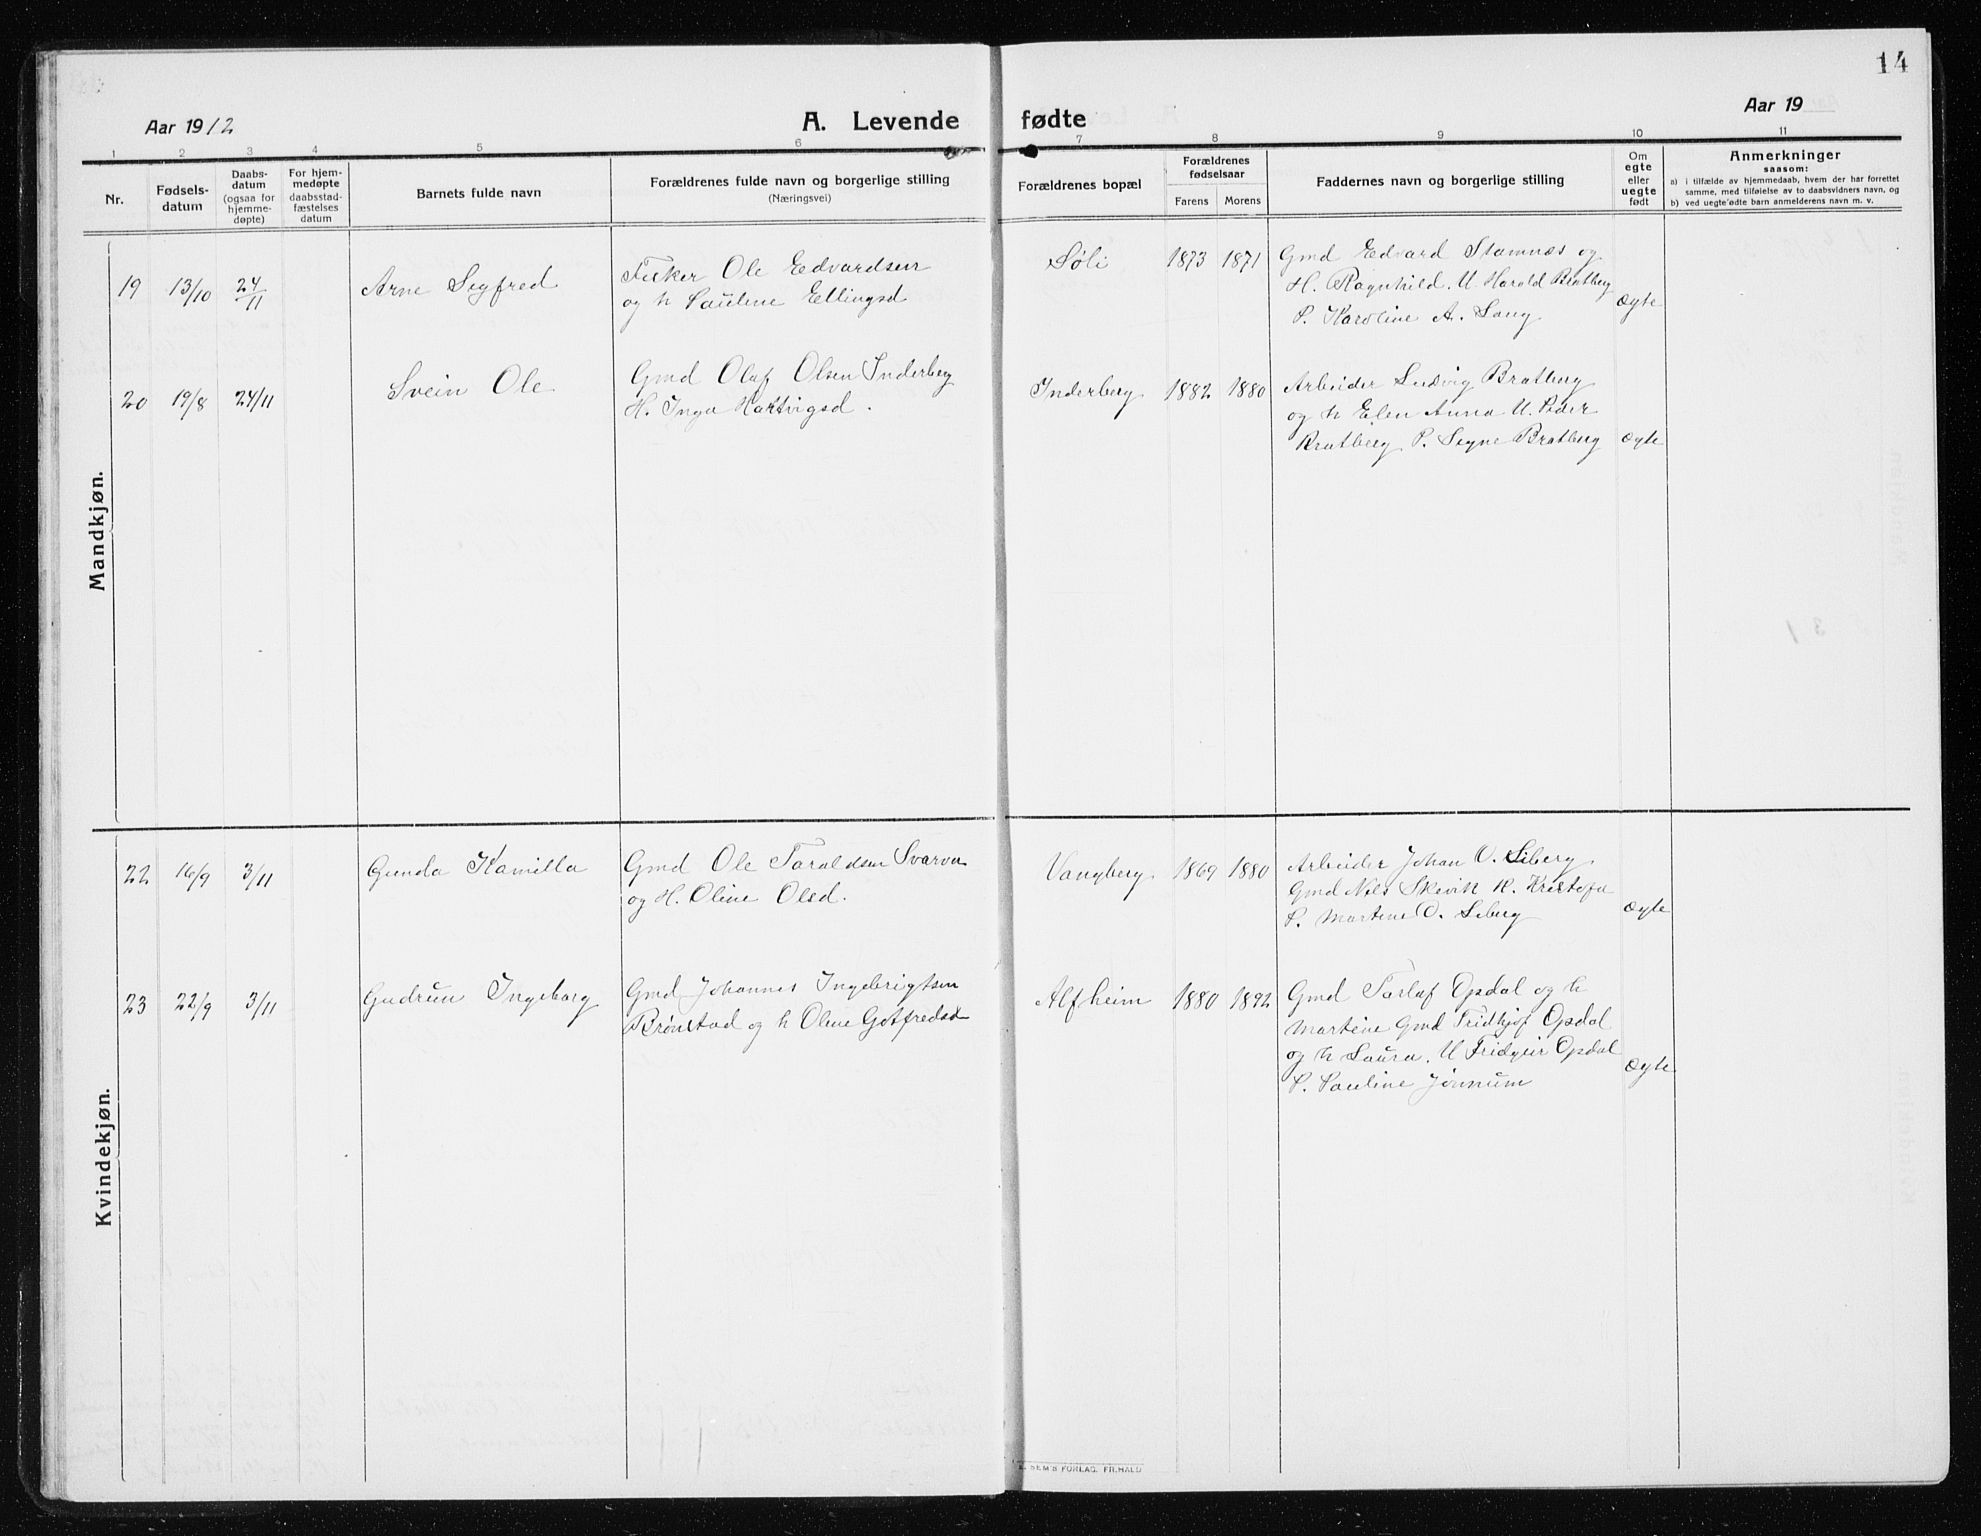 14
Aar 1912
A. Levende fødte
Aar 19
1 2 3 4 5 6 7 8 9 10 11
Nr.
Fødsels-
datum
Daabs-
datum
(ogsaa for
hjemme-
døpte)
For hjem-
medøpte
daabsstad-
fæstelses
datum
Barnets fulde navn
Forældrenes fulde navn og borgerlige stilling
(Næringsvei)
Forældrenes bopæl
Forældrenes
fødselsaar
Farens Morens
Faddernes navn og borgerlige stilling
Om
egte
eller
uegte
født
Anmerkninger
saasom:
a) i tilfælde av hjemmedaab, hvem der har forrettet
samme, med tilføielse av to daabsvidners navn, og
b) ved uegte fødte barn anmelderens navn m. v.
Mandkjøn.
19 13/10 24/11 Arne Sigfred
Fisker Ole Edvardsen
og h Pauline Ellingsd
Søli 1873 1871
Gmd Edvard Stamnæs og
H. Ragnhild. U Harald Bratberg
P. Karoline A. Saug
Ægte
20 19/8 24/11 Svein Ole
Gmd Olaf Olsen Inderberg
H. Inga Hartvigsd.
Inderberg 1882 1880
Arbeider Ludvig Bratberg
og h Elen Anna U. Peder
Bratberg P. Signe Bratberg
Ægte
Kvindekjøn.
22 16/9 3/11 Gunda Kamilla
Gmd Ole Taraldsen Svarva
og H. Oline Olsd.
Vangberg 1869 1880
Arbeider Johan O. Liberg
Gmd Nils Skevik H. Kristofa
P. Martine O. Liberg
Ægte
23 22/9 3/11 Gudrun Ingeborg
Gmd Johannes Ingebrigtsen
Brønstad og h Oline Gotfredsd
Alfheim 1880 1892
Gmd Torlaf Opdal og h
Martine Gmd Fridhjof Opdal
og h Laura. U Fridgeir Opdal
P. Pauline Jønnum
Ægte
E. SEM'S FORLAG. FR.HALD